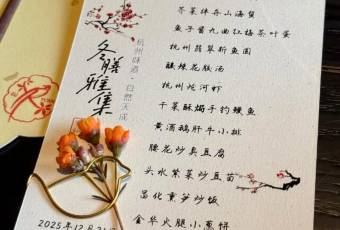 冬膳雅集
杭州味道·自然天成
芥菜拌舟山海蜇
鱼子酱九曲红梅茶叶蛋
杭州翡翠斩鱼圆
酸辣花胶汤
杭州炝河虾
干菜酥焗手钓鳗鱼
黄酒鹅肝牛小排
腰花炒臭豆腐
头水紫菜炒豆苗
昌化熏笋炒饭
金华火腿小葱饼
2025年12月21日